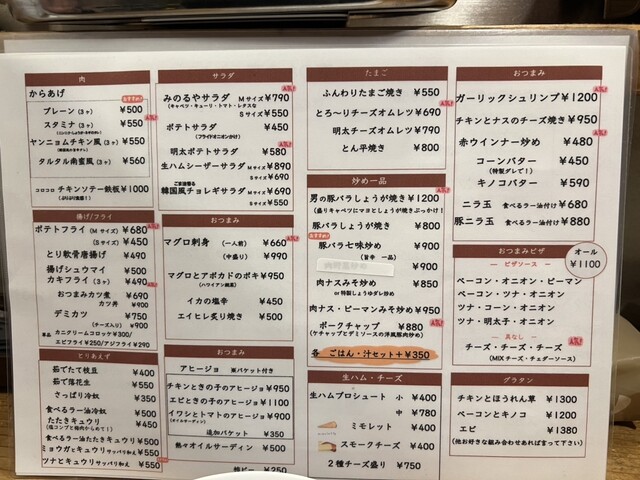 肉
からあげ
プレーン(3ヶ) ¥500
おすすめ!
スタミナ(3ヶ) ¥560
ヤンニョムチキン風(3ヶ) ¥560
タルタル南蛮風(3ヶ) ¥560
コロコロ チキンソテー鉄板 ¥1000
揚げ/フライ
ポテトフライ (Mサイズ) ¥680
人気!
(Sサイズ) ¥450
とり軟骨唐揚げ ¥490
揚げシュウマイ ¥500
カキフライ(3ヶ) ¥490
おつまみカツ煮 ¥690
カツ丼 ¥900
デミカツ ¥750
(チーズ入り) ¥900
単品 カニクリームコロッケ¥300/
エビフライ¥250/アジフライ¥290
とりあえず
茹でたて枝豆 ¥400
茹で落花生 ¥550
さっぱり冷奴 ¥350
食べるラー油冷奴 ¥400
たたきキュウリ ¥450
(塩コンブと梅肉からめて!)
食べるラー油たたきキュウリ ¥550
ミョウガとキュウリサッパリ和え ¥550
ツナとキュウリサッパリ和え ¥550
サラダ
みのるやサラダ Mサイズ ¥790
人気!
(キャベツ・キューリ・トマト・レタスな
Sサイズ ¥550
ポテトサラダ ¥450
(フライドオニオンかけ)
明太ポテトサラダ ¥580
人気!
生ハムシーザーサラダ Mサイズ ¥890
Sサイズ ¥690
韓国風チョレギサラダ Mサイズ ¥690
Sサイズ ¥550
おつまみ
マグロ刺身 (一人前) ¥660
人気!
(中盛り) ¥990
マグロとアボカドのポキ ¥950
(ハワイアン鮪黒)
イカの塩辛 ¥450
エイヒレ炙り焼き ¥500
おつまみ
アヒージョ ※バケット付き
チキンときの子のアヒージョ ¥950
エビときの子のアヒージョ ¥1100
イワシとトマトのアヒージョ ¥900
(オイルサーディン)
追加バケット ¥350
熱々オイルサーディン ¥500
たまご
ふんわりたまご焼き ¥550
とろ〜りチーズオムレツ ¥690
人気!
明太チーズオムレツ ¥790
とん平焼き ¥800
炒め一品
男の豚バラしょうが焼き ¥1200
人気!
(盛りキャベツにマヨとしょうが焼きぶっかけ!)
豚バラしょうが焼き ¥800
おすすめ!
豚バラ七味炒め ¥900
(旨辛 一品)
¥900
肉ナスみそ炒め ¥850
or 特製しょうゆダレ炒め
肉ナス・ピーマンみそ炒め ¥950
ポークチャップ ¥880
人気!
(ケチャップとデミソースの洋風豚炒め)
各 ごはん・汁セット+¥350
生ハム・チーズ
生ハムプロシュート 小 ¥400
中 ¥780
ミモレット ¥400
スモークチーズ ¥400
2種チーズ盛り ¥750
おつまみ
ガーリックシュリンプ ¥1200
人気!
チキンとナスのチーズ焼き ¥950
赤ウインナー炒め ¥480
人気!
コーンバター ¥450
(特製ダレで!)
キノコバター ¥590
ニラ玉 食べるラー油付け ¥680
豚ニラ玉 食べるラー油付け ¥880
おつまみピザ
オール
¥1100
ピザソース
ベーコン・オニオン・ピーマン
ベーコン・ツナ・オニオン
ツナ・コーン・オニオン
ツナ・明太子・オニオン
具なし
チーズ・チーズ・チーズ
人気!
(MIXチーズ・チェダーソース)
グラタン
チキンとほうれん草 ¥1300
ベーコンとキノコ ¥1200
エビ ¥1380
(他お好きな組み合わせあれば言って下さい)